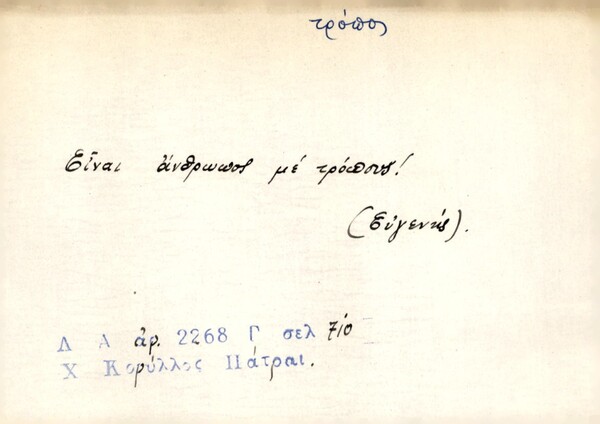 τρόπος
Εἶναι ἄνθρωπος μέ τρόπους!
(Εὐγενής).
Λ Α ἀρ. 2268 Γ σελ 710
Χ Κορύλλος Πάτραι.